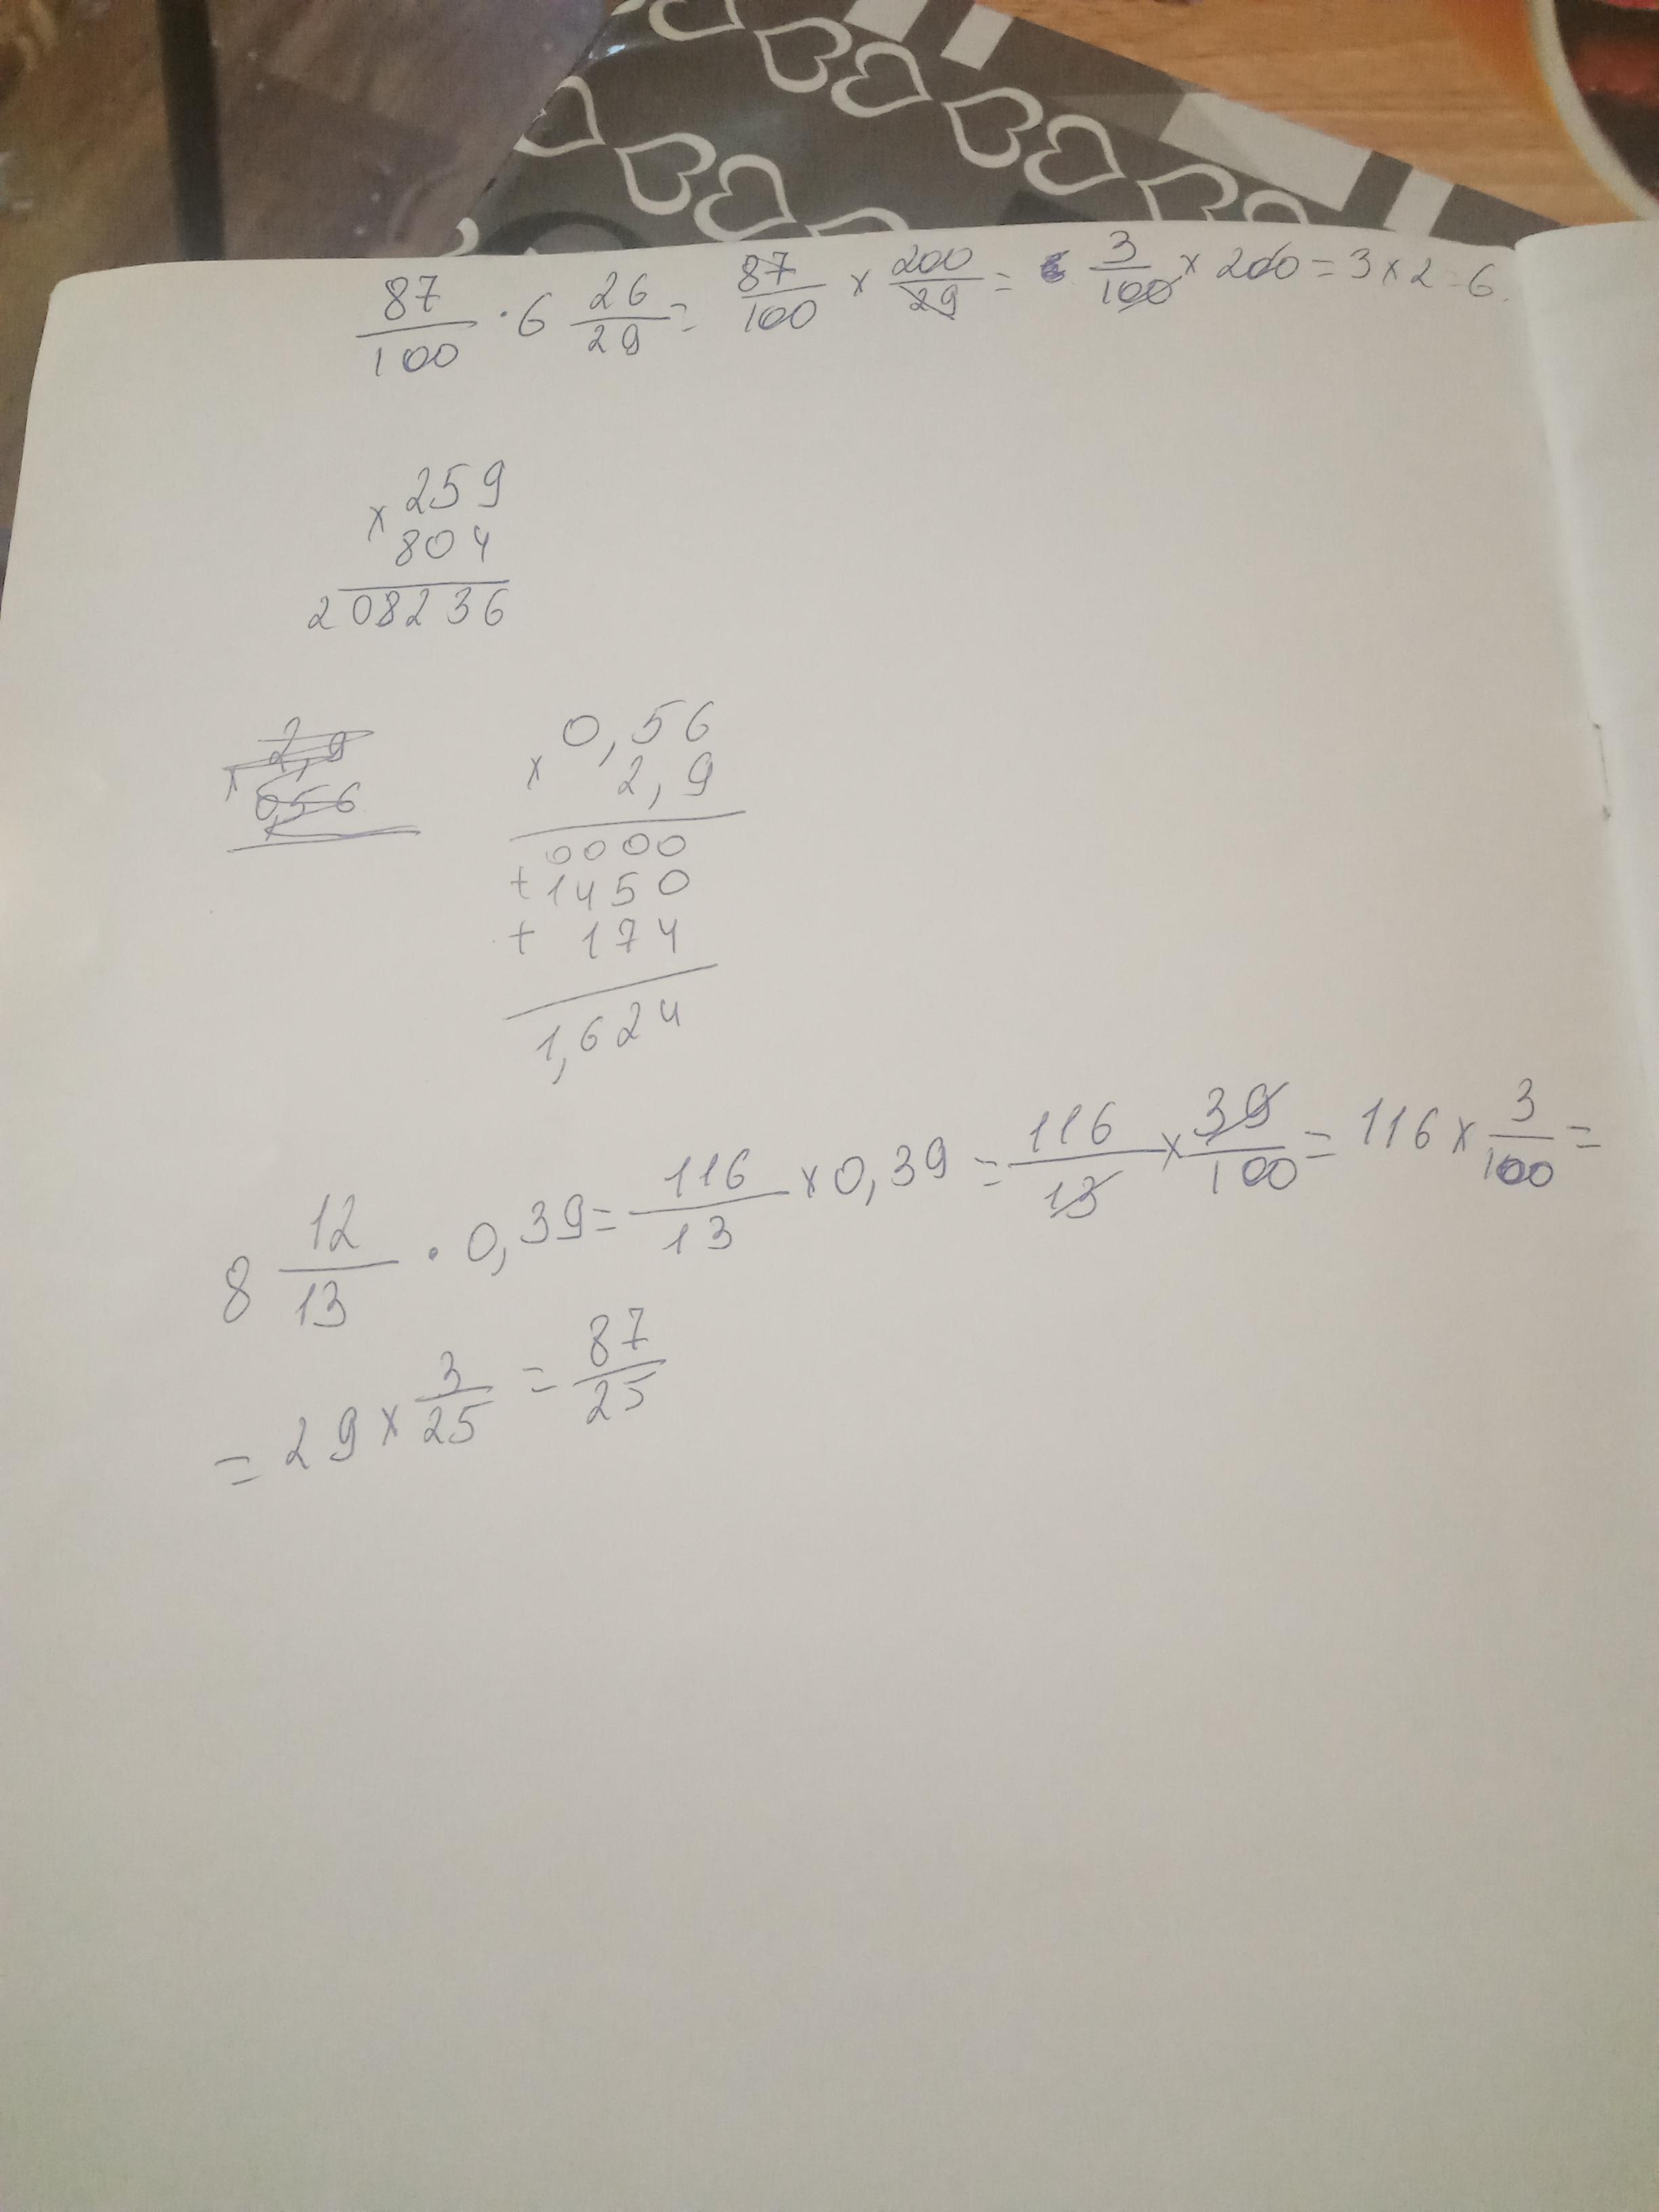 87/100 · 6 26/29 = 87/100 × 200/29 = 3/100 × 200 = 3 × 2 = 6.
× 259
804
208236
× 2,9
0,56
× 0,56
2,9
0000
+ 1450
+ 174
1,624
8 12/13 · 0,39 = 116/13 × 0,39 = 116/13 × 39/100 = 116 × 3/100 =
= 29 × 3/25 = 87/25